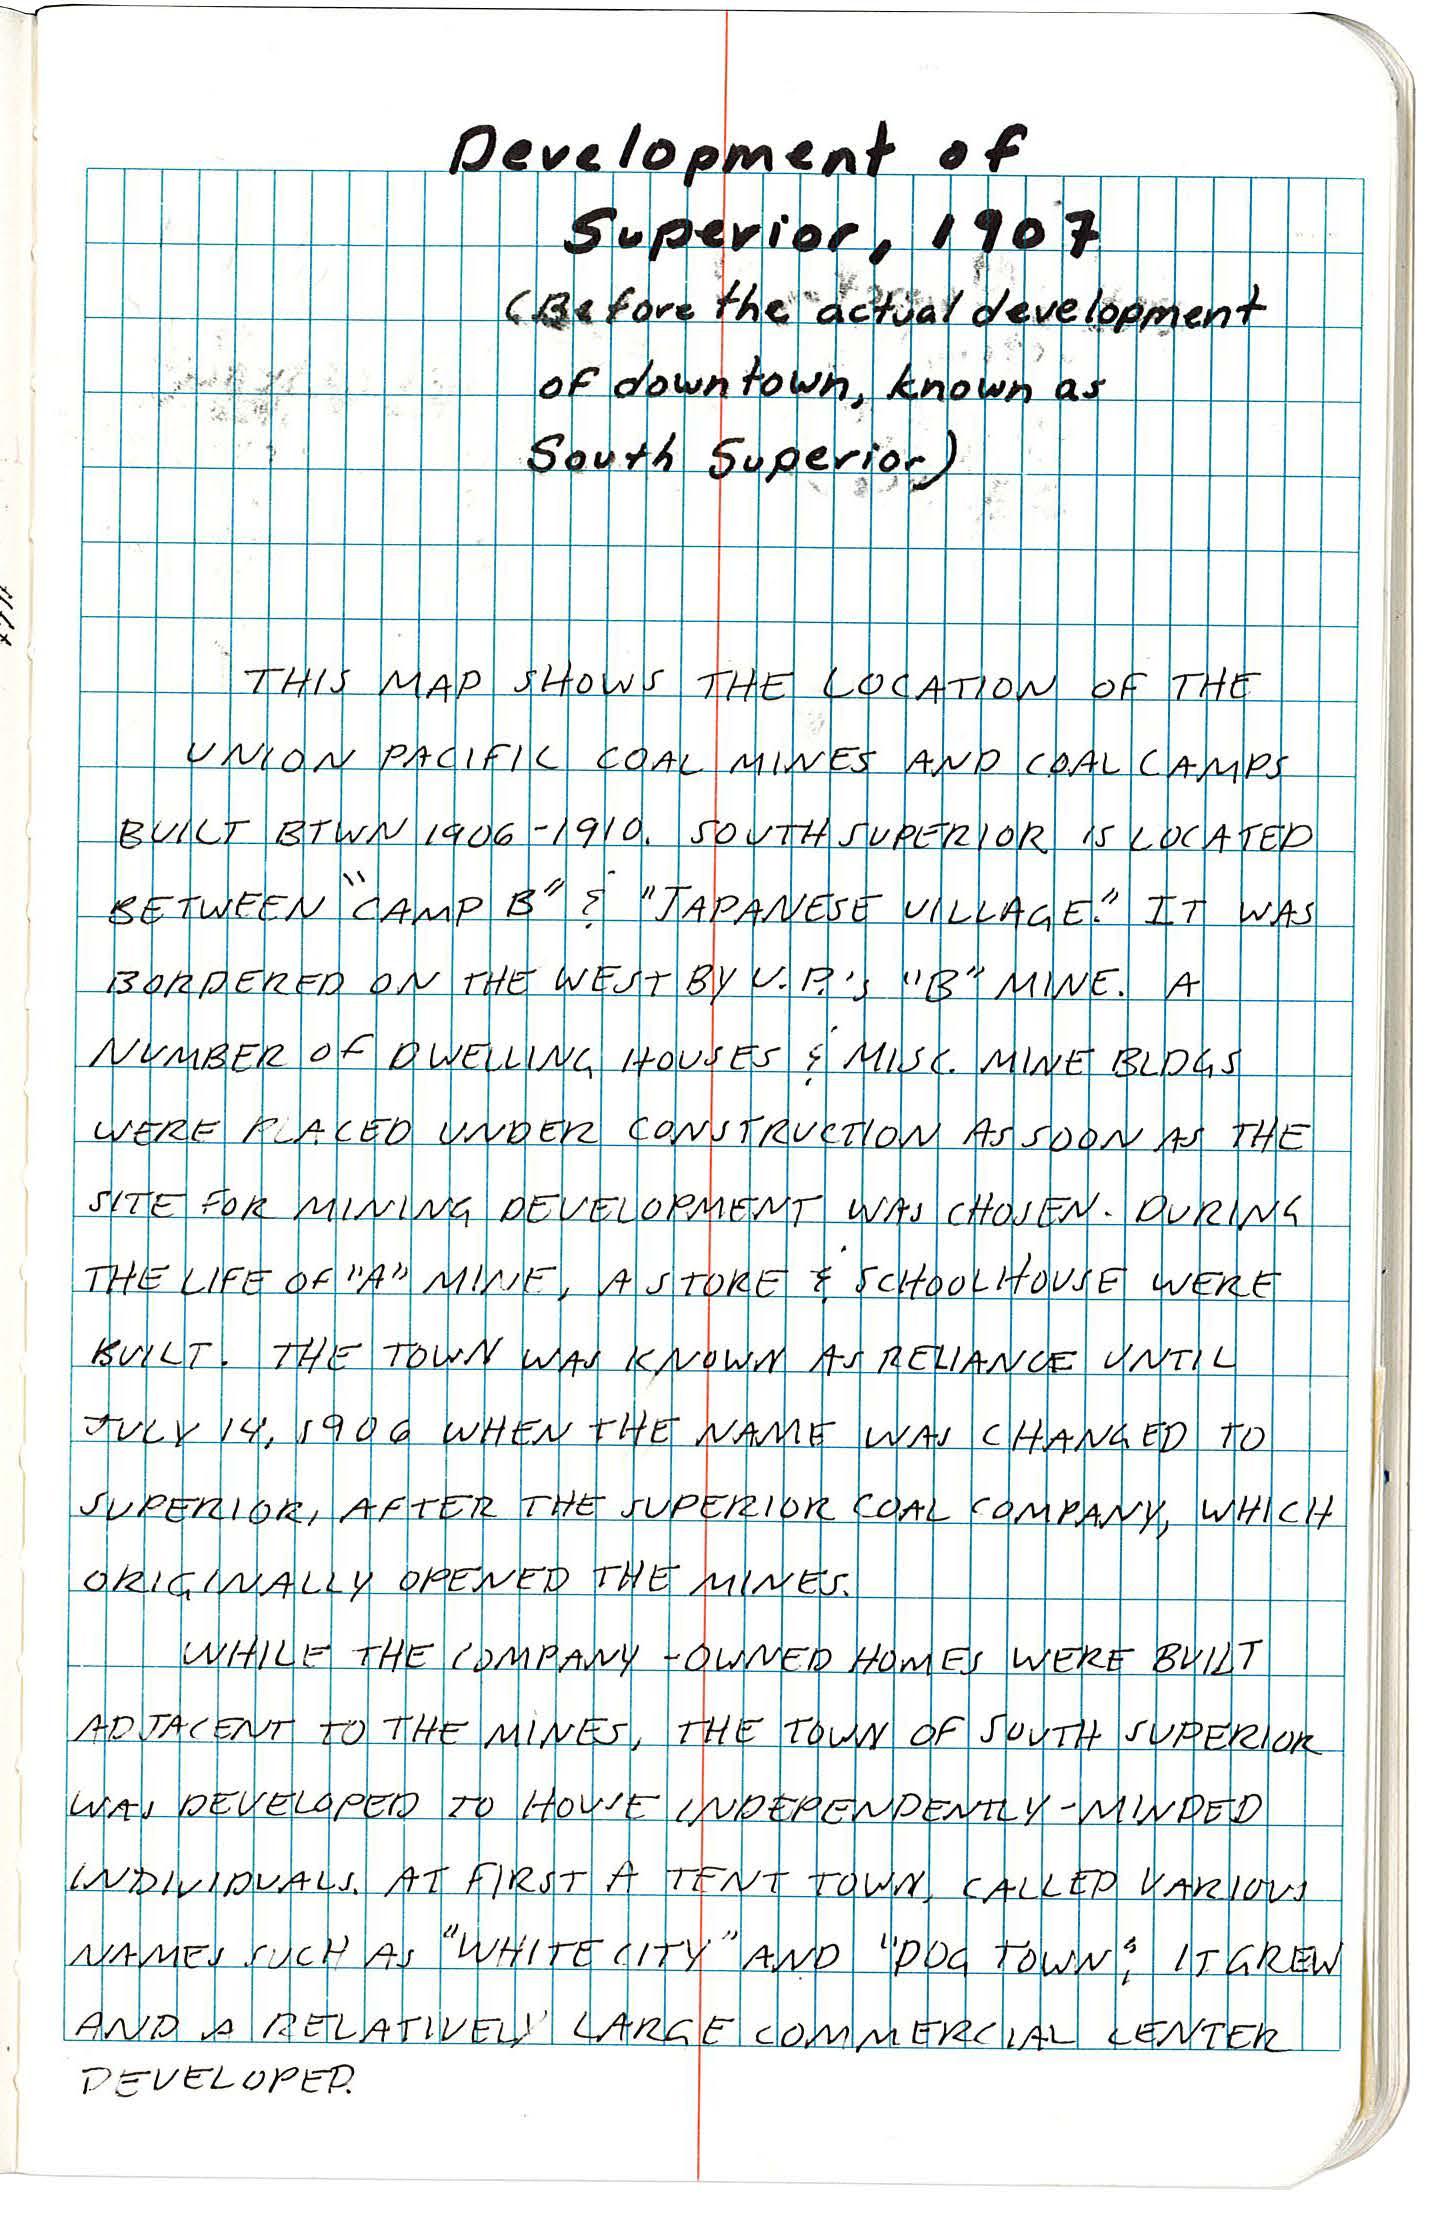 Development of
Superior, 1907
(Before the actual development
of downtown, known as
South Superior)
THIS MAP SHOWS THE LOCATION OF THE
UNION PACIFIC COAL MINES AND COAL CAMPS
BUILT BTWN 1906-1910. SOUTH SUPERIOR IS LOCATED
BETWEEN "CAMP B" & "JAPANESE VILLAGE." IT WAS
BORDERED ON THE WEST BY U.P.'s "B" MINE. A
NUMBER OF DWELLING HOUSES & MISC. MINE BLDGS
WERE PLACED UNDER CONSTRUCTION AS SOON AS THE
SITE FOR MINING DEVELOPMENT WAS CHOSEN. DURING
THE LIFE OF "A" MINE, A STORE & SCHOOLHOUSE WERE
BUILT. THE TOWN WAS KNOWN AS RELIANCE UNTIL
JULY 14, 1906 WHEN THE NAME WAS CHANGED TO
SUPERIOR, AFTER THE SUPERIOR COAL COMPANY, WHICH
ORIGINALLY OPENED THE MINES.
WHILE THE COMPANY-OWNED HOMES WERE BUILT
ADJACENT TO THE MINES, THE TOWN OF SOUTH SUPERIOR
WAS DEVELOPED TO HOUSE INDEPENDENTLY-MINDED
INDIVIDUALS. AT FIRST A TENT TOWN, CALLED VARIOUS
NAMES SUCH AS "WHITE CITY" AND "DOG TOWN", IT GREW
AND A RELATIVELY LARGE COMMERCIAL CENTER
DEVELOPED.